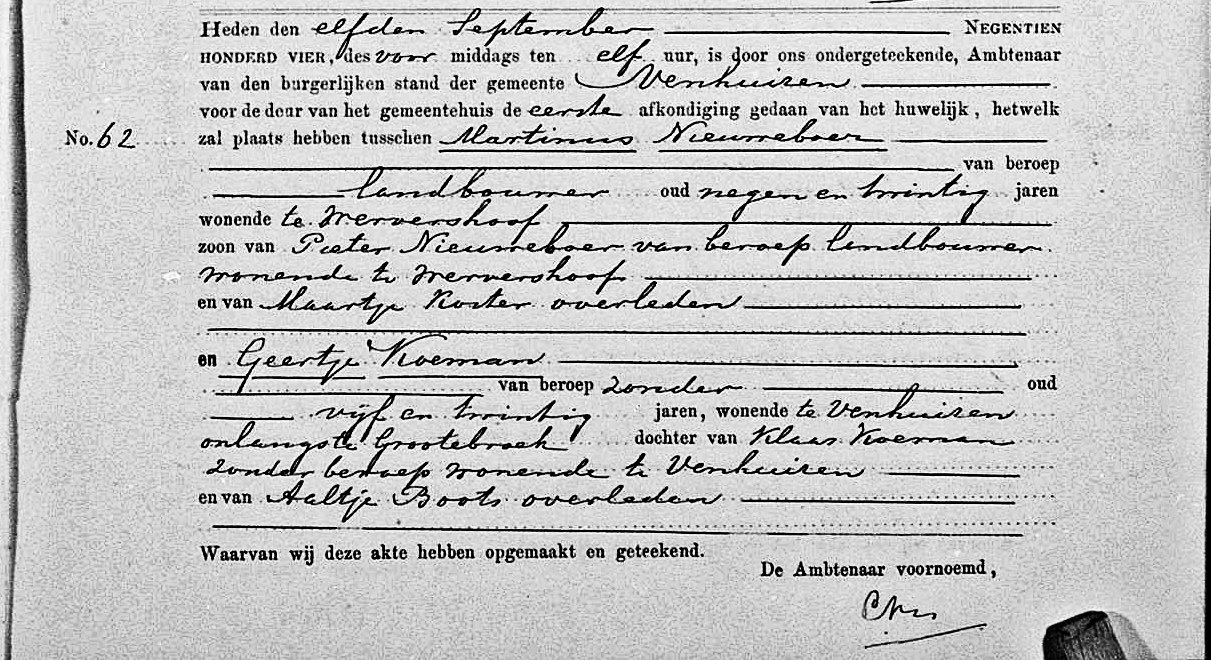 Heden den elfden September NEGENTIEN
HONDERD VIER, des voor middags ten elf uur, is door ons ondergeteekende, Ambtenaar
van den burgerlijken stand der gemeente Venhuizen
voor de deur van het gemeentehuis de eerste afkondiging gedaan van het huwelijk, hetwelk
No. 62 zal plaats hebben tusschen Martinus Nieuweboer
van beroep
landbouwer oud negen en twintig jaren
wonende te Wervershoof
zoon van Pieter Nieuweboer van beroep landbouwer
wonende te Wervershoof
en van Maartje Koster overleden
en Geertje Koeman
van beroep zonder oud
vijf en twintig jaren, wonende te Venhuizen
onlangs te Grootebroek dochter van Klaas Koeman
zonder beroep wonende te Venhuizen
en van Aaltje Boots overleden
Waarvan wij deze akte hebben opgemaakt en geteekend.
De Ambtenaar voornoemd,